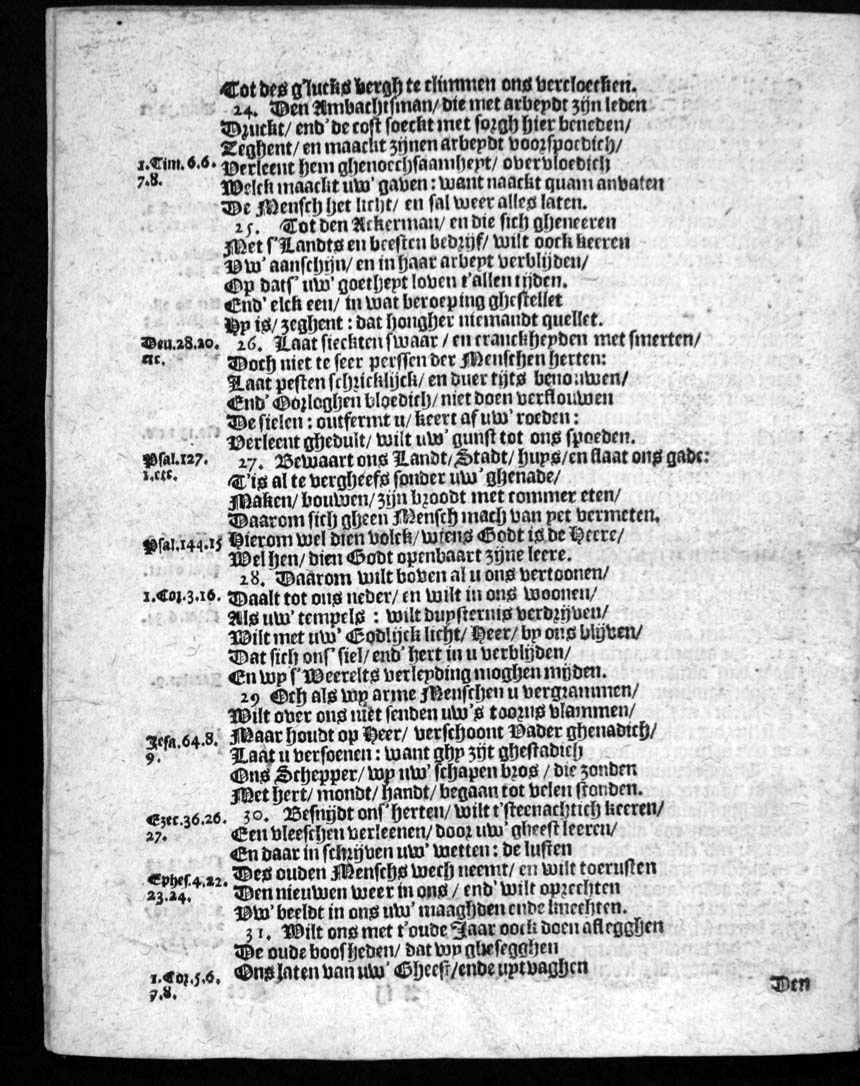 Tot des g'lucks bergh te climmen ons vercloecken.
24. Den Ambachtsman/ die met arbeydt zijn leden
Druckt/ end' de cost soeckt met sorgh hier beneden/
Zeghent/ en maackt zijnen arbeydt voorspoedich/
1.Tim. 6.6. Verleent hem ghenoechsaamheyt/ overvloedich
7.8. Welck maackt uw' gaven: want naackt quam anvaten
De Mensch het licht/ en sal weer alles laten.
25. Tot den Ackerman/ en die sich gheneeren
Met s'Landts en beesten bedrijf/ wilt oock keeren
Vw' aanschijn/ en in haar arbeyt verblijden/
Op dats' uw' goetheyt loven t'allen tijden.
End' elck een/ in wat beroeping ghestellet
Hy is/ zeghent: dat hongher niemandt quellet.
Deu.28.20. 26. Laat sieckten swaar/ en cranckheyden met smerten/
etc. Doch niet te seer perssen der Menschen herten:
Laat pesten schricklijck/ en duer tijts benouwen/
End' Oorloghen bloedich/ niet doen verflouwen
De sielen: ontfermt u/ keert af uw' roeden:
Verleent ghedult/ wilt uw' gunst tot ons spoeden.
Psal.127. 27. Bewaart ons Landt/ Stadt/ huys/ en slaat ons gade:
1.etc. T'is al te vergheefs sonder uw' ghenade/
Maken/ bouwen/ zijn broodt met commer eten/
Daarom sich gheen Mensch mach van yet vermeten.
Psal.144.15 Hierom wel dien volck/ wiens Godt is de Heere/
Wel hen/ dien Godt openbaart zijne leere.
28. Daarom wilt boven al u ons vertoonen/
1.Cor.3.16. Daalt tot ons neder/ en wilt in ons woonen/
Als uw' tempels: wilt duysternis verdrijven/
Wilt met uw' Godlijck licht/ Heer/ by ons blijven/
Dat sich ons' siel/ end' hert in u verblijden/
En wy s'Weerelts verleyding moghen mijden.
29 Och als wy arme Menschen u vergrammen/
Wilt over ons niet senden uw's toorns vlammen/
Jesa.64.8. Maar houdt op Heer/ verschoont Vader ghenadich/
9. Laat u versoenen: want ghy zijt ghestadich
Ons Schepper/ wy uw' schapen bros/ die zonden
Met hert/ mondt/ handt/ begaan tot velen stonden.
Ezec.36.26. 30. Besnijdt ons' herten/ wilt t'steenachtich keeren/
27. Een vleeschen verleenen/ door uw' gheest leeren/
En daar in schrijven uw' wetten: de lusten
Ephes.4.22. Des ouden Menschs wech neemt/ en wilt toerusten
23.24. Den nieuwen weer in ons/ end' wilt oprechten
Vw' beeldt in ons uw' maaghden ende knechten.
31. Wilt ons met t'oude Jaar oock doen aflegghen
De oude boosheden/ dat wy ghesegghen
1.Cor.5.6. Ons laten van uw' Gheest/ ende uytvaghen
7.8.
Den